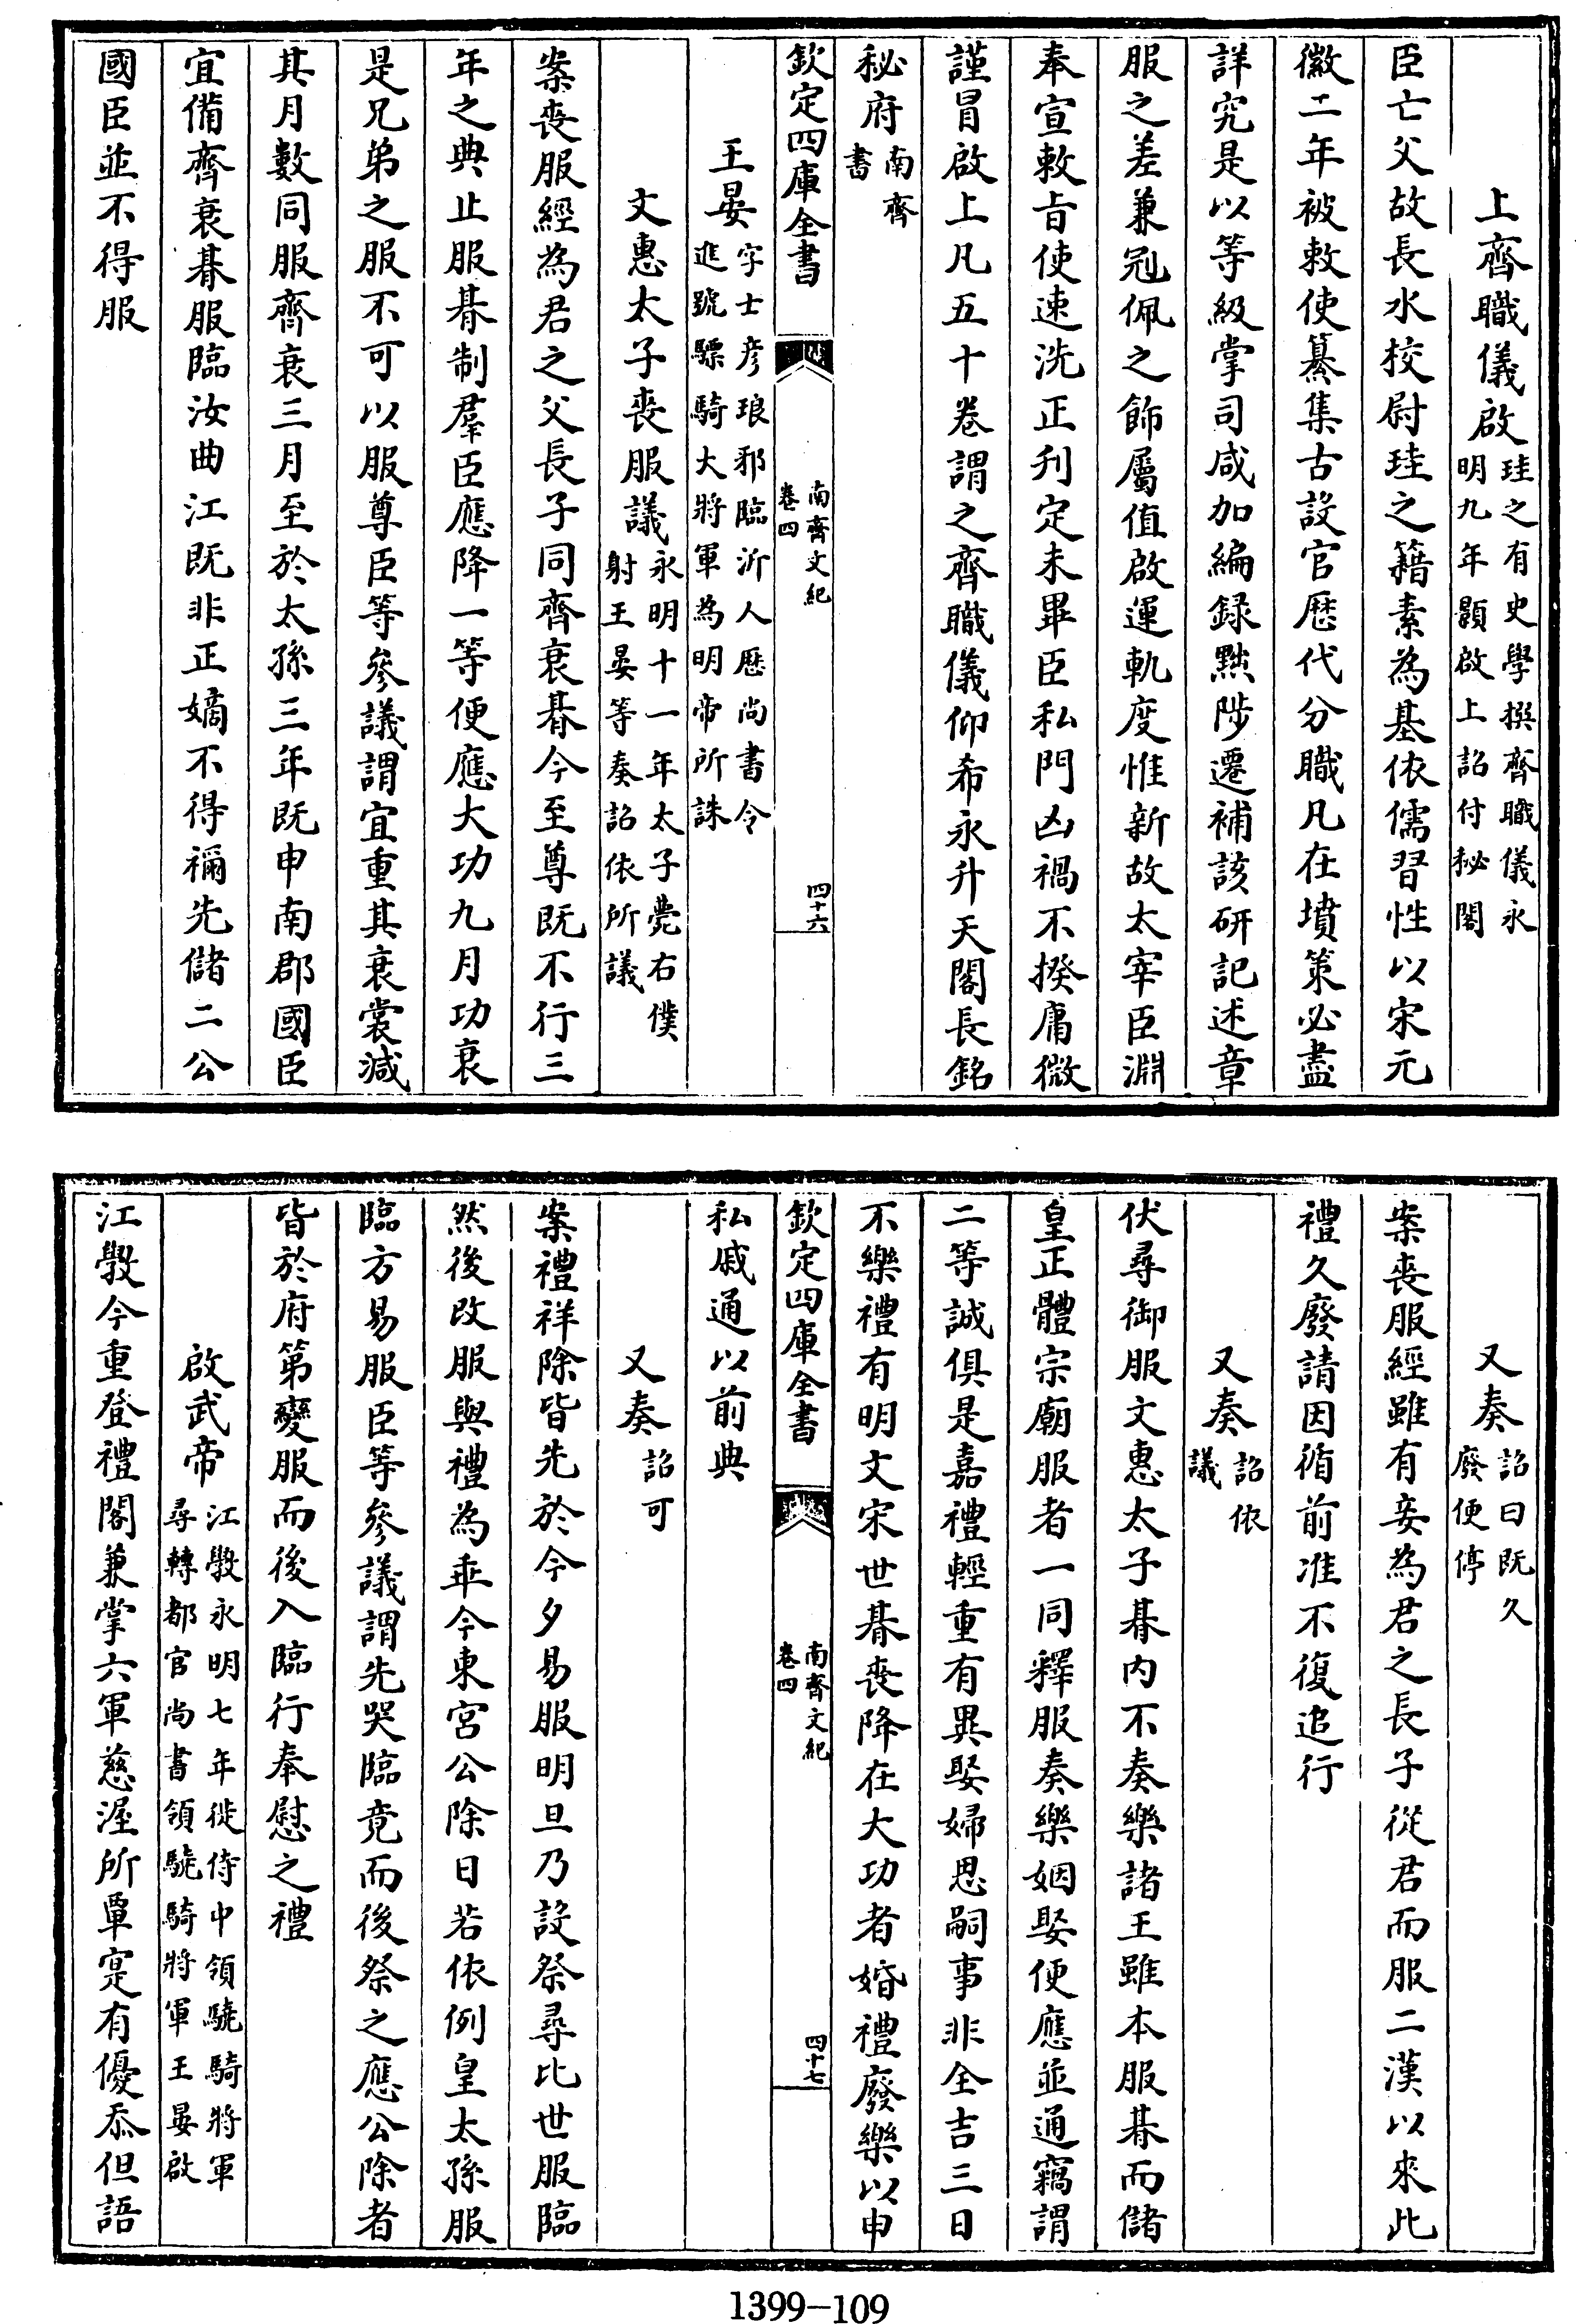 上齊職儀啟珪之有史學撰齊職儀永明九年顥啟上詔付秘閣
臣亡父故長水校尉珪之籍素為基依儒習性以宋元
徽二年被敕使纂集古設官歷代分職凡在墳策必盡
詳究是以等級掌司咸加編録黜陟遷補該研記述章
服之差兼冠佩之飾屬值啟運軌度惟新故太宰臣淵
奉宣敕旨使速洗正刋定未畢臣私門凶禍不揆庸微
謹冒啟上凡五十卷謂之齊職儀仰希永升天閣長銘
秘府南齊書
欽定四庫全書
南齊文紀
卷四
四十六
王晏字士彦琅邪臨沂人歷尚書令進號驃騎大將軍為明帝所誅
文惠太子喪服議永明十一年太子薨右僕射王晏等奏詔依所議
案喪服經為君之父長子同齊衰朞今至尊既不行三
年之典止服朞制羣臣應降一等便應大功九月功衰
是兄弟之服不可以服尊臣等參議謂宜重其衰裳減
其月數同服齊衰三月至於太孫三年既申南郡國臣
宜備齊衰朞服臨汝曲江既非正嫡不得禰先儲二公
國臣並不得服
又奏詔曰既久廢便停
案喪服經雖有妾為君之長子從君而服二漢以來此
禮久廢請因循前准不復追行
又奏詔依議
伏尋御服文惠太子朞内不奏樂諸王雖本服朞而儲
皇正體宗廟服者一同釋服奏樂姻娶便應並通竊謂
二等誠俱是嘉禮輕重有異娶婦思嗣事非全吉三日
不樂禮有明文宋世朞喪降在大功者婚禮廢樂以申
欽定四庫全書
南齊文紀
卷四
四十七
私戚通以前典
又奏詔可
案禮祥除皆先於今夕易服明旦乃設祭尋比世服臨
然後改服與禮為乖今東宮公除日若依例皇太孫服
臨方易服臣等參議謂先哭臨竟而後祭之應公除者
皆於府第變服而後入臨行奉慰之禮
啟武帝江斆永明七年徙侍中領驍騎將軍尋轉都官尚書領驍騎將軍王晏啟
江斆今重登禮閣兼掌六軍慈渥所覃寔有優忝但語
1399-109